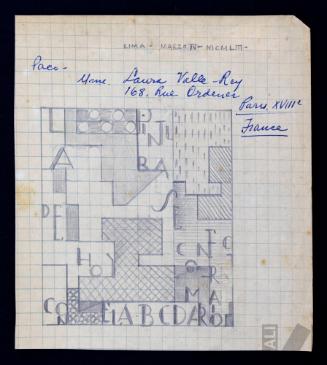 LIMA - MARZO IV - MCMLIII -
Paco -
Mme. Laura Valle-Rey
168, Rue Ordener
Paris. XVIIIe
France
L
A
DE
L
HOY
CON
PINTU
BAS
S
CNTC
O
MO
RA
ELABCDARIO
ALI